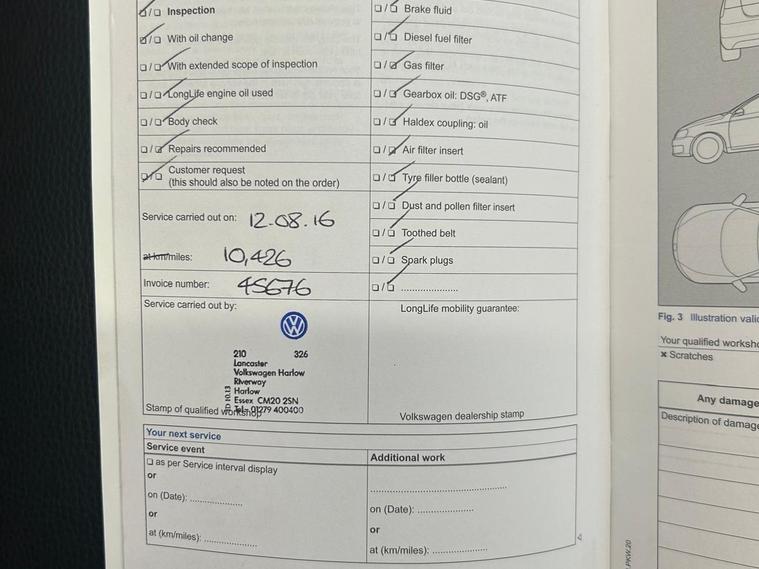 ☐/☐ Inspection
☐/☐ With oil change
☐/☐ With extended scope of inspection
☐/☐ LongLife engine oil used
☐/☐ Body check
☐/☐ Repairs recommended
☐/☐ Customer request
(this should also be noted on the order)
Service carried out on: 12.08.16
at km/miles: 10,426
Invoice number: 45676
Service carried out by:
VW
210 326
Lancaster
Volkswagen Harlow
Riverway
Harlow
Essex CM20 2SN
Tel: 01279 400400
10.13
Stamp of qualified workshop
☐/☐ Brake fluid
☐/☐ Diesel fuel filter
☐/☐ Gas filter
☐/☐ Gearbox oil: DSG®, ATF
☐/☐ Haldex coupling: oil
☐/☐ Air filter insert
☐/☐ Tyre filler bottle (sealant)
☐/☐ Dust and pollen filter insert
☐/☐ Toothed belt
☐/☐ Spark plugs
☐/☐ ......................
LongLife mobility guarantee:
Volkswagen dealership stamp
Your next service
Service event
☐ as per Service interval display
or
on (Date): ....................
or
at (km/miles): ....................
Additional work
..................................................
on (Date): ....................
or
at (km/miles): ....................
4
PKW.20
Fig. 3 Illustration
Your qualified
× Scratches
Any
Description of